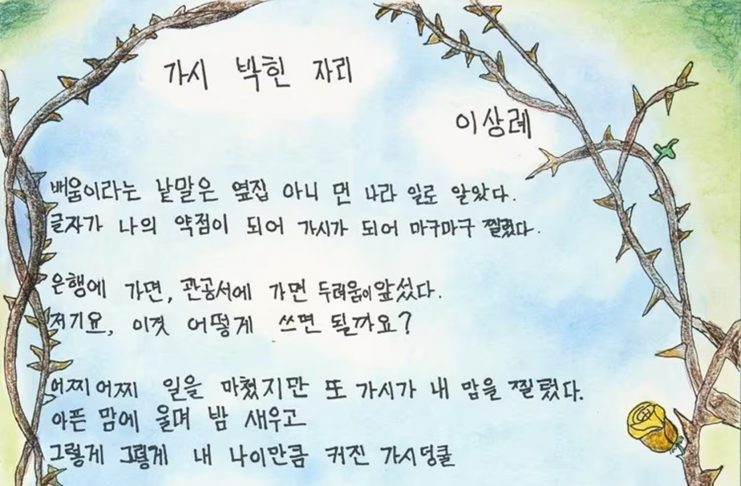 가시 박힌 자리
이상례
배움이라는 낱말은 옆집 아니 먼 나라 일로 알았다.
글자가 나의 약점이 되어 가시가 되어 마구마구 찔렀다.
은행에 가면, 관공서에 가면 두려움이 앞섰다.
저기요, 이것 어떻게 쓰면 될까요?
어찌어찌 일을 마쳤지만 또 가시가 내 맘을 찔렀다.
아픈 맘에 울며 밤 새우고
그렇게 그렇게 내 나이만큼 커진 가시덩쿨